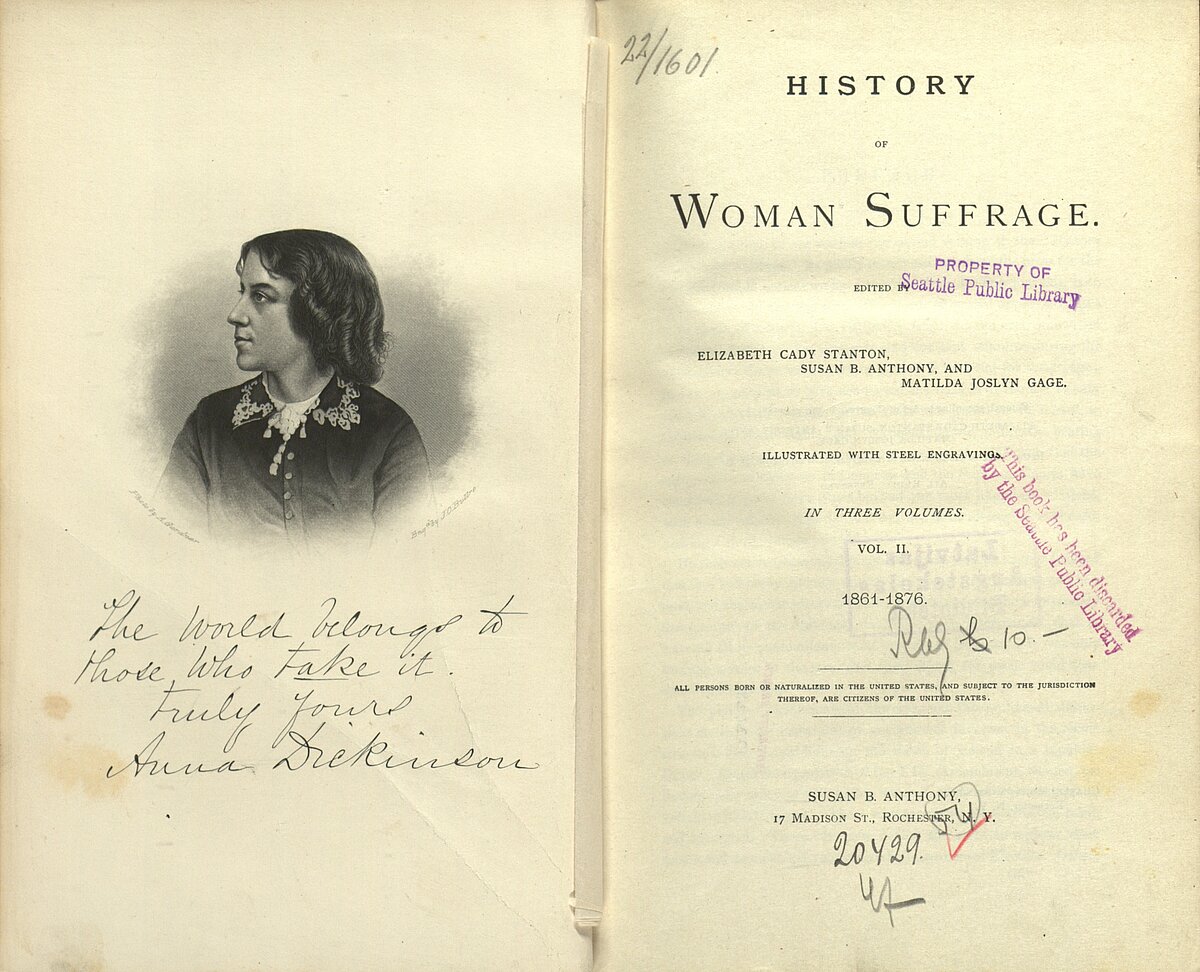 Photo by A. Gardner
Engd by J.C. Buttre
The World belongs to
those Who take it.
Truly Yours
Anna Dickinson
22/1601.
HISTORY
OF
WOMAN SUFFRAGE.
PROPERTY OF
Seattle Public Library
EDITED BY
ELIZABETH CADY STANTON,
SUSAN B. ANTHONY, AND
MATILDA JOSLYN GAGE.
ILLUSTRATED WITH STEEL ENGRAVINGS.
This book has been discarded
by the Seattle Public Library
IN THREE VOLUMES.
VOL. II.
1861-1876.
10.—
ALL PERSONS BORN OR NATURALIZED IN THE UNITED STATES, AND SUBJECT TO THE JURISDICTION
THEREOF, ARE CITIZENS OF THE UNITED STATES.
SUSAN B. ANTHONY,
17 MADISON ST., ROCHESTER, N. Y.
54
20429.